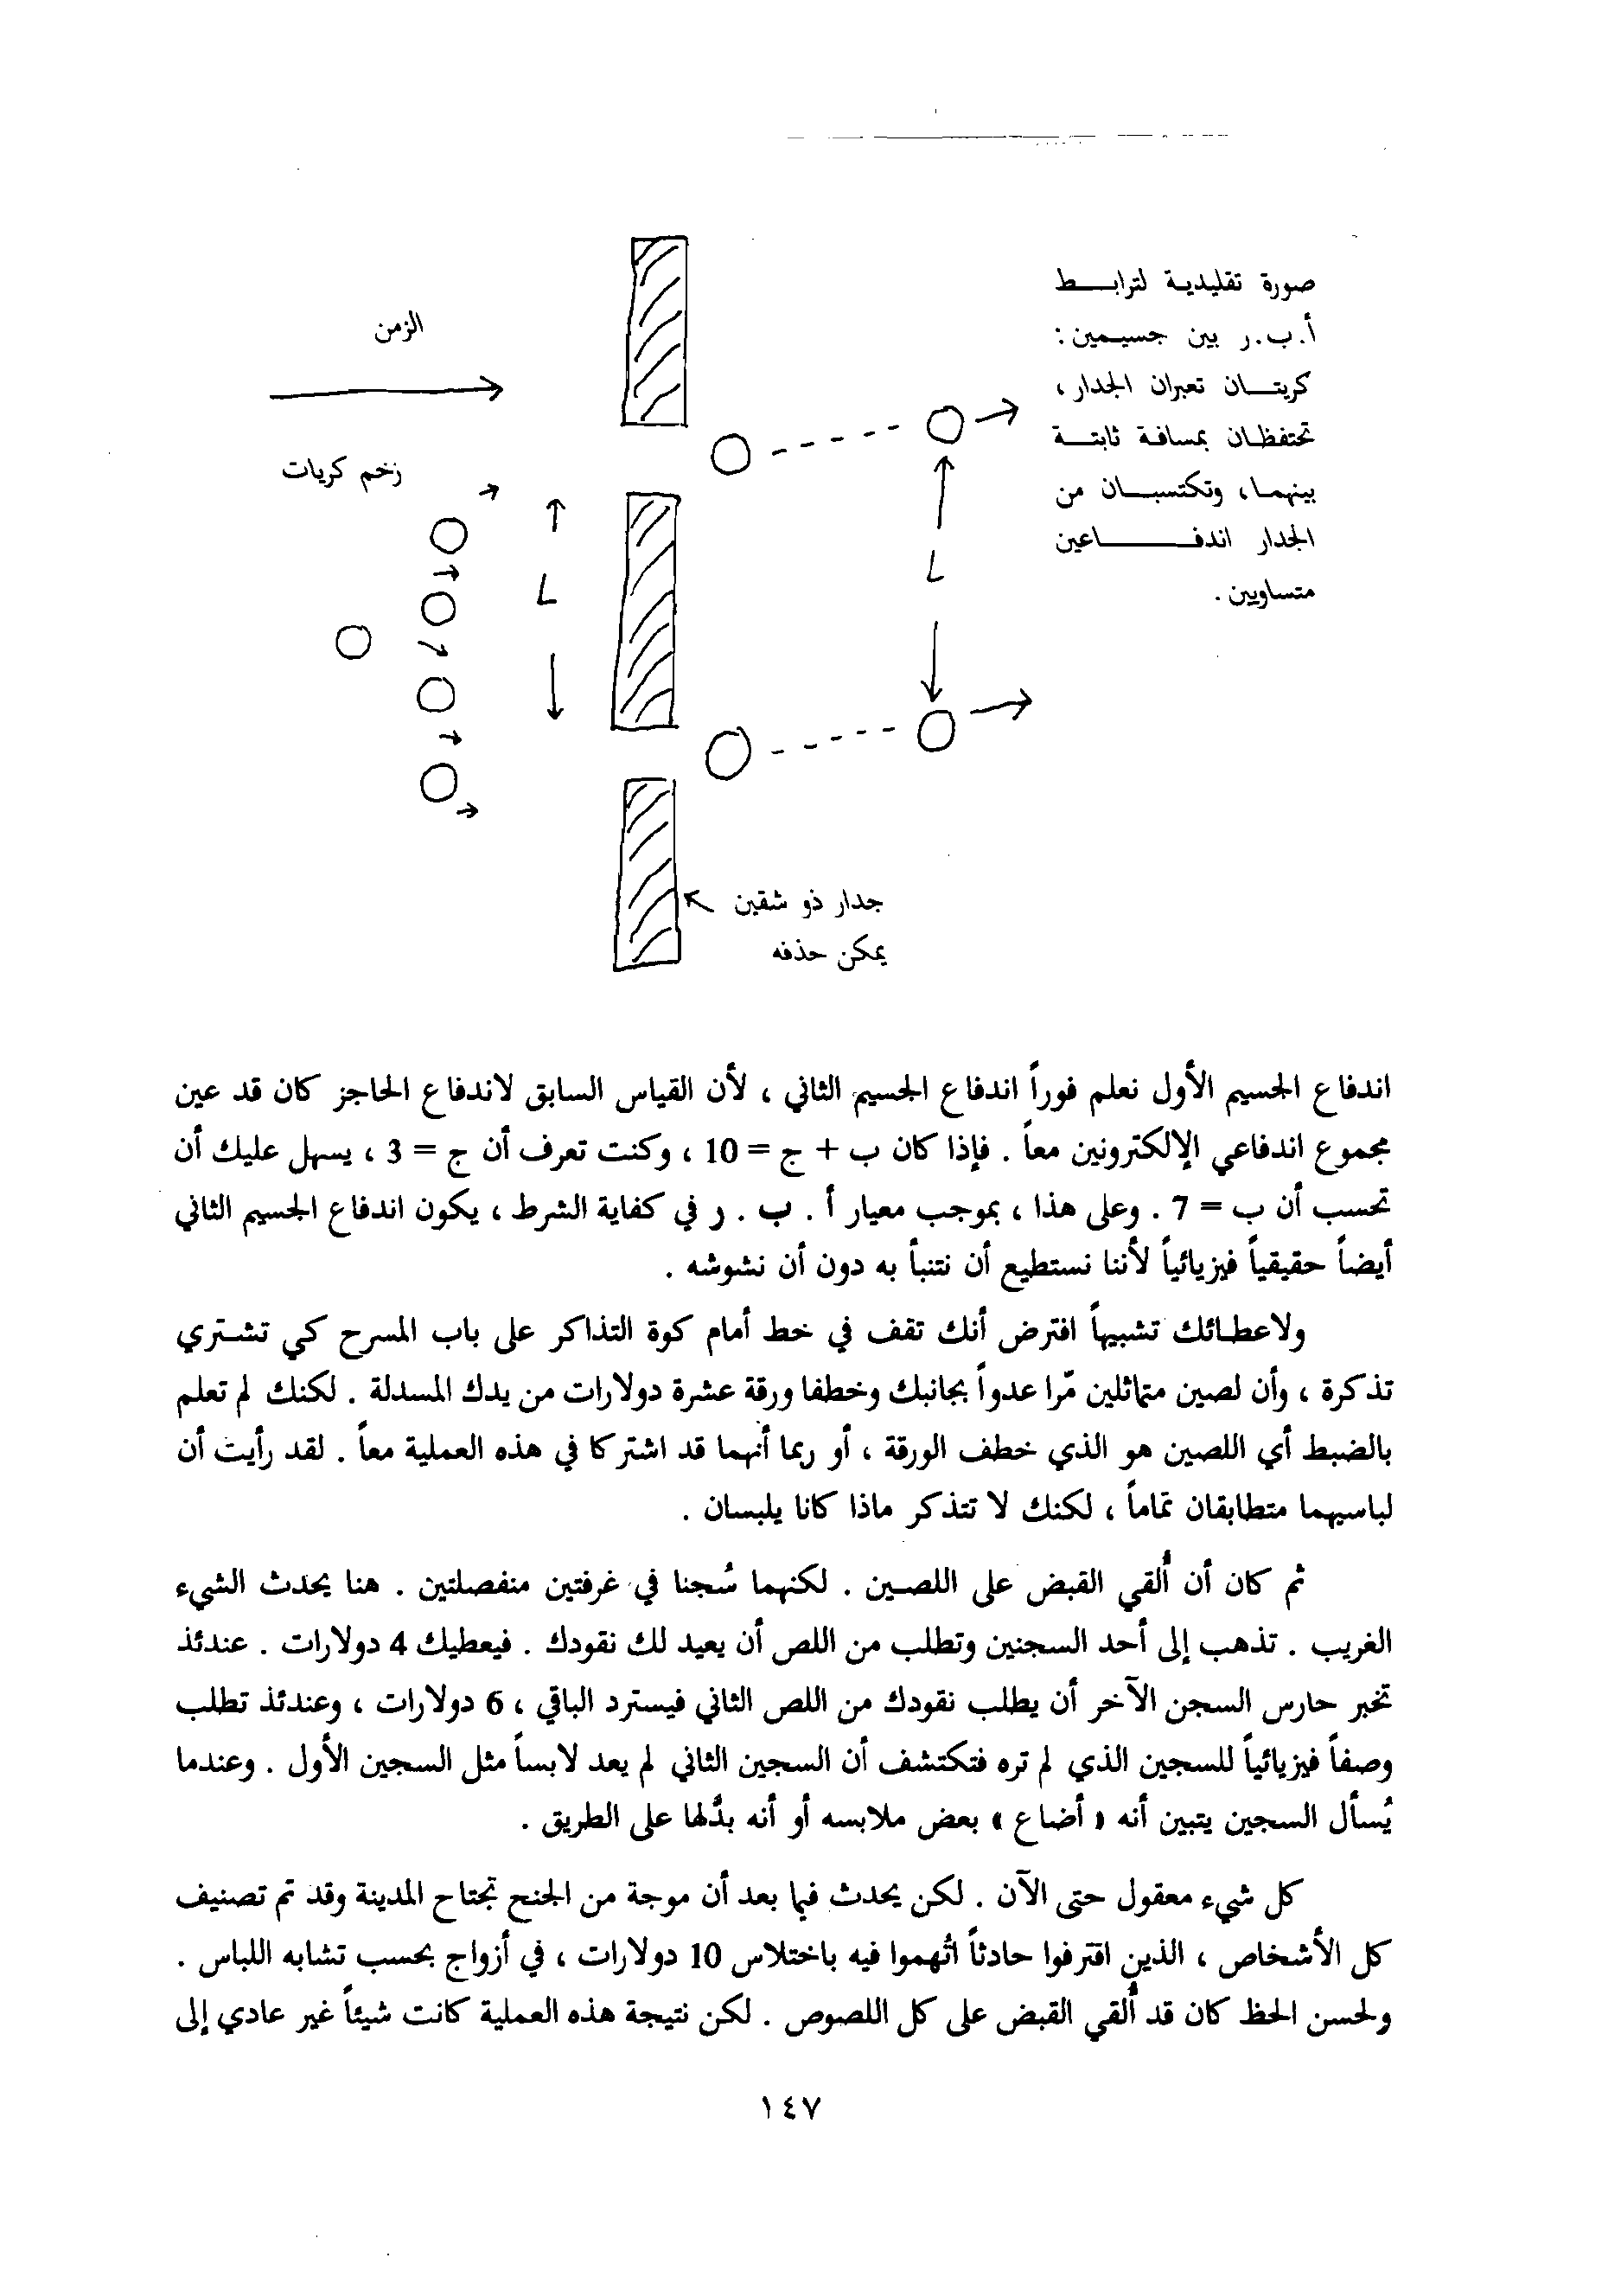 صورة تقليدية لترابـــط
أ.ب.ر بين جسيمين:
كريتــان تعبران الجدار ،
تحتفظان بمسافة ثابتــة
بينهما، وتكتسبــان من
الجدار اندفــــاعين
متساويين .
الزمن
زخم كريات
L
L
جدار ذو شقين
يمكن حذفه
اندفاع الجسيم الأول نعلم فوراً اندفاع الجسيم الثاني ، لأن القياس السابق لاندفاع الحاجز كان قد عين
مجموع اندفاعي الإلكترونين معاً . فإذا كان ب + ج = 10 ، وكنت تعرف أن ج = 3 ، يسهل عليك أن
تحسب أن ب = 7 . وعلى هذا ، بموجب معيار أ . ب . ر في كفاية الشرط ، يكون اندفاع الجسيم الثاني
أيضاً حقيقياً فيزيائياً لأننا نستطيع أن نتنبأ به دون أن نشوشه .
ولاعطائك تشبيهاً افترض أنك تقف في خط أمام كوة التذاكر على باب المسرح كي تشتري
تذكرة ، وأن لصين متماثلين مّرا عدواً بجانبك وخطفا ورقة عشرة دولارات من يدك المسدلة . لكنك لم تعلم
بالضبط أي اللصين هو الذي خطف الورقة ، أو ربما أنهما قد اشتركا في هذه العملية معاً . لقد رأيت أن
لباسيهما متطابقان تماماً ، لكنك لا تتذكر ماذا كانا يلبسان .
ثم كان أن أُلقي القبض على اللصين . لكنهما سُجنا في غرفتين منفصلتين . هنا يحدث الشيء
الغريب . تذهب إلى أحد السجنين وتطلب من اللص أن يعيد لك نقودك . فيعطيك 4 دولارات . عندئذ
تخبر حارس السجن الآخر أن يطلب نقودك من اللص الثاني فيسترد الباقي ، 6 دولارات ، وعندئذ تطلب
وصفاً فيزيائياً للسجين الذي لم تره فتكتشف أن السجين الثاني لم يعد لابساً مثل السجين الأول . وعندما
يُسأل السجين يتبين أنه « أضاع » بعض ملابسه أو أنه بدَّلها على الطريق .
كل شيء معقول حتى الآن . لكن يحدث فيما بعد أن موجة من الجنح تجتاح المدينة وقد تم تصنيف
كل الأشخاص ، الذين اقترفوا حادثاً اتُهموا فيه باختلاس 10 دولارات ، في أزواج بحسب تشابه اللباس .
ولحسن الحظ كان قد أُلقي القبض على كل اللصوص . لكن نتيجة هذه العملية كانت شيئاً غير عادي إلى
١٤٧